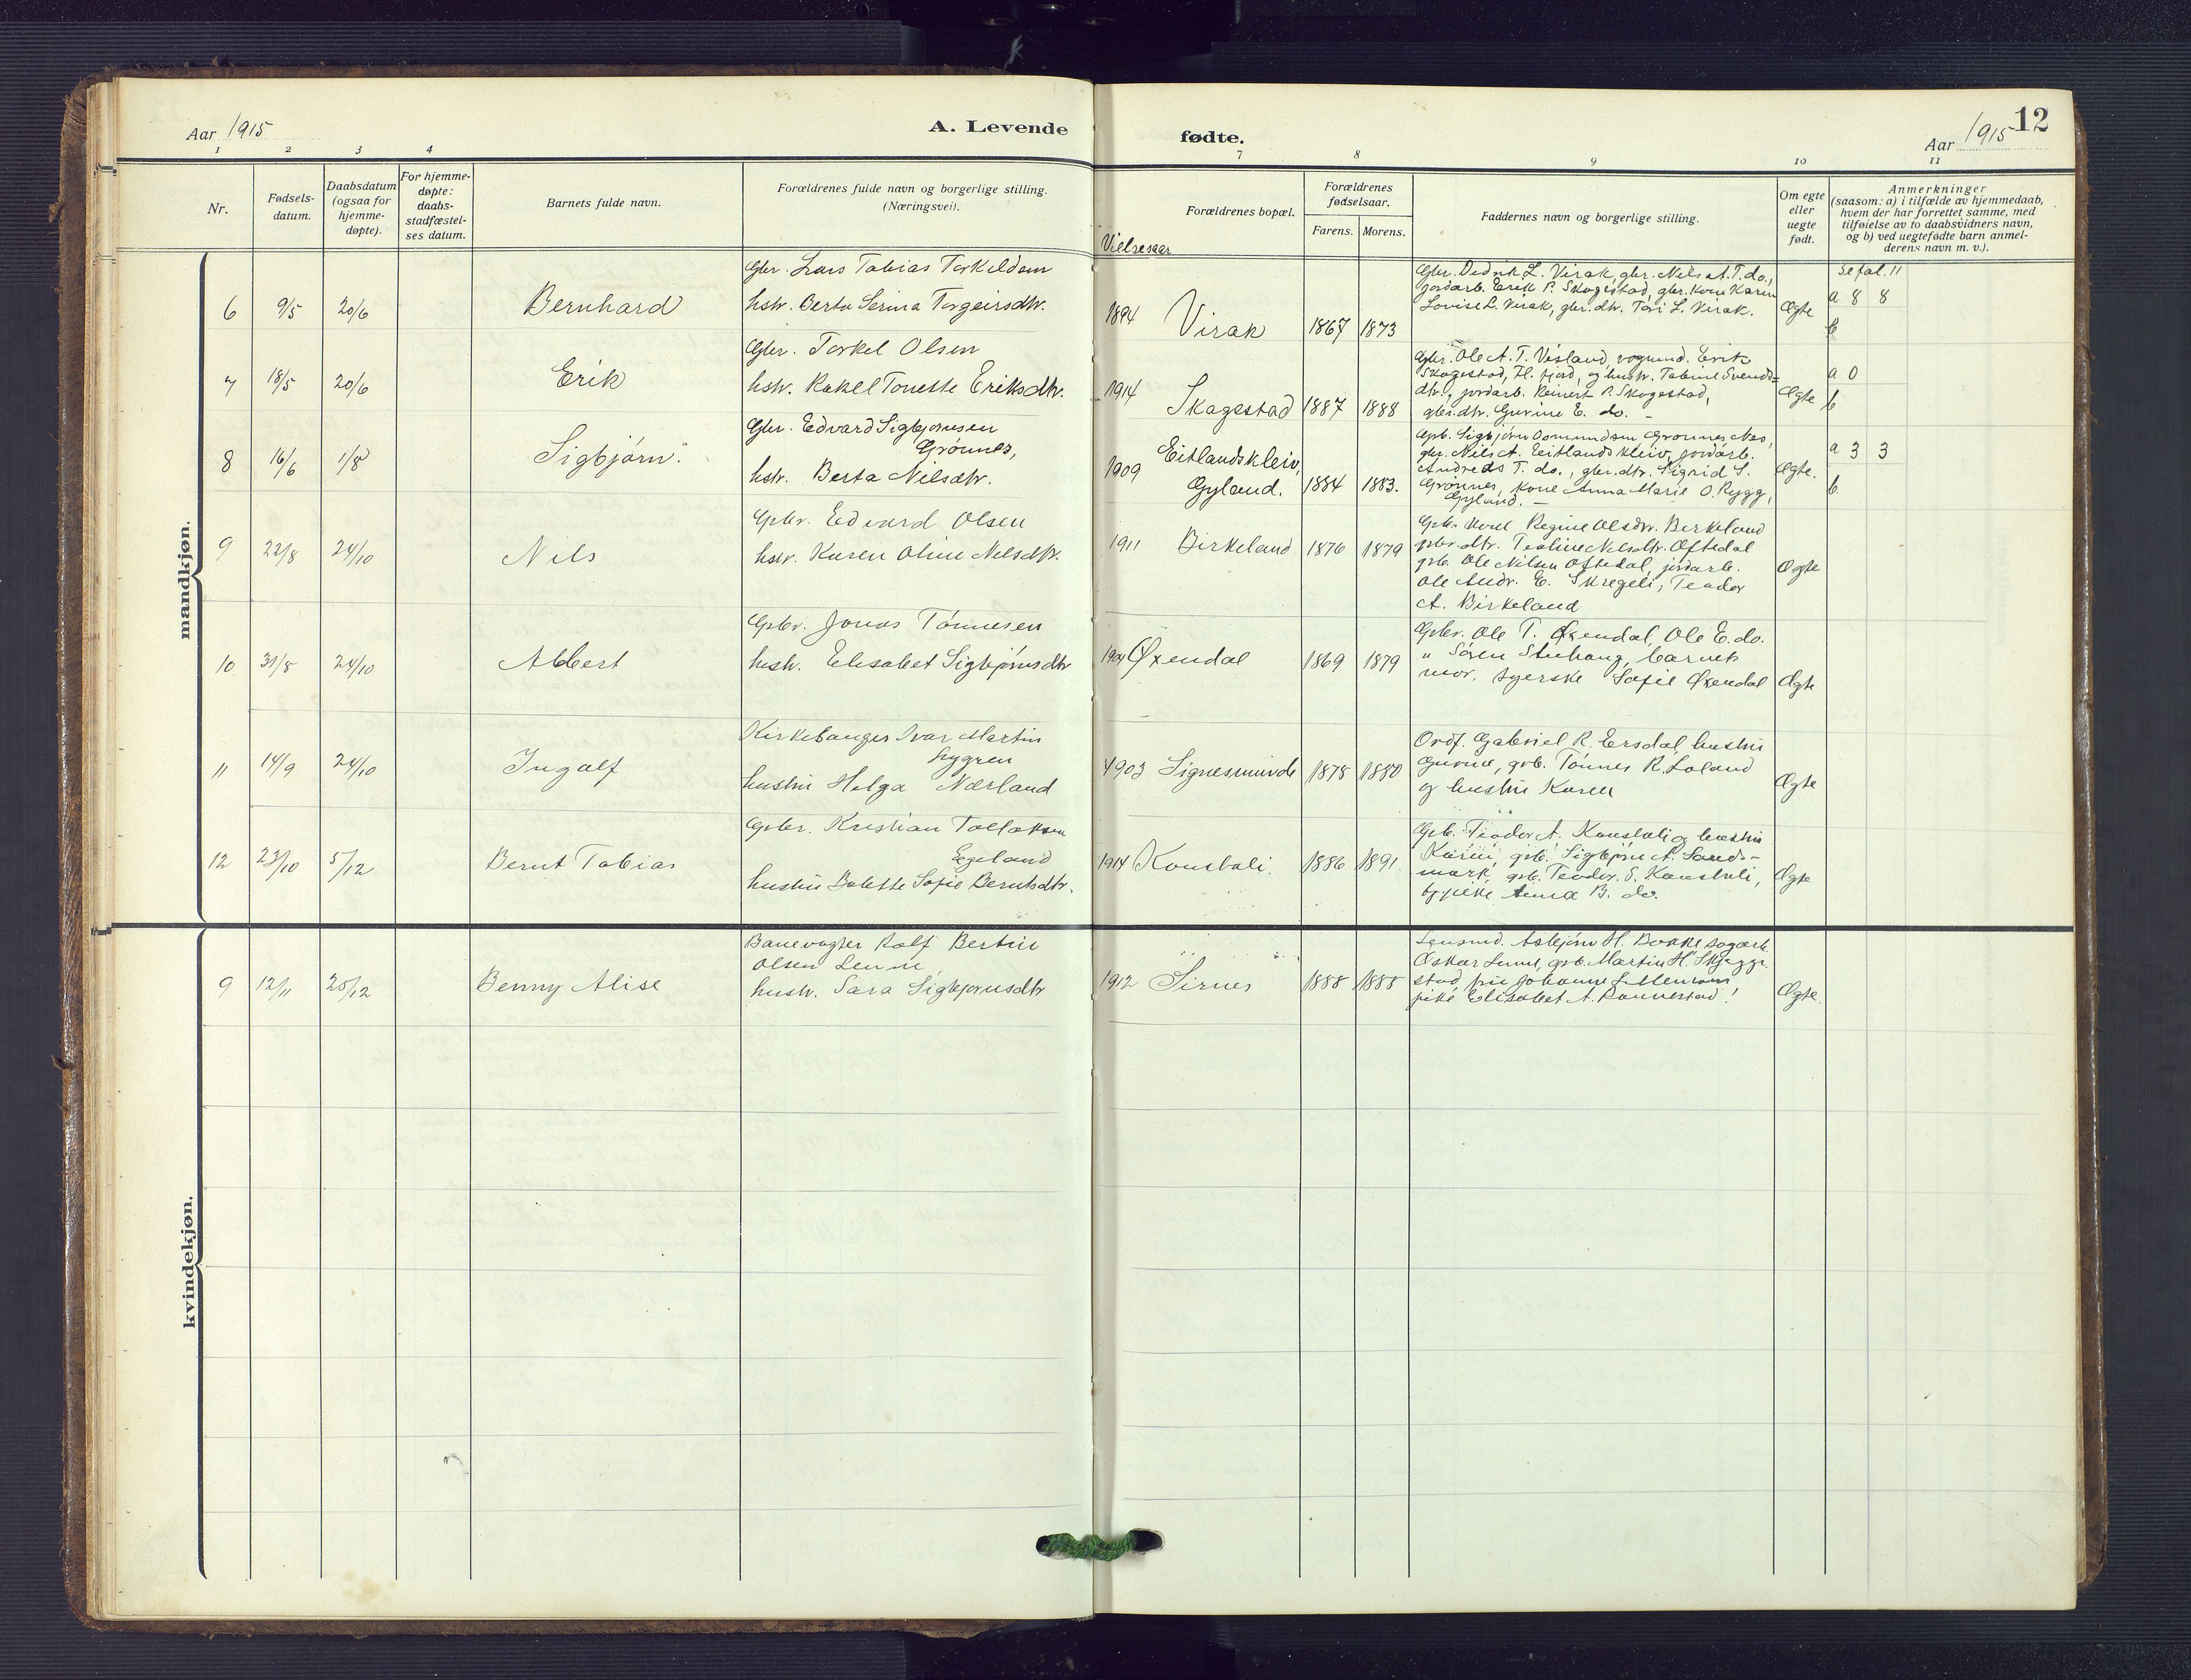 Aar 1915
A. Levende
fødte.
Aar 1915
12
1 2 3 4
7 8 9 10 11
Nr.
Fødsels-
datum.
Daabsdatum
(ogsaa for
hjemme-
døpte).
For hjemme-
døpte:
daabs-
stadfæstel-
ses datum.
Barnets fulde navn.
Forældrenes fulde navn og borgerlige stilling.
(Næringsvei).
Vielsesaar
Forældrenes bopæl.
Forældrenes
fødselsaar.
Farens. Morens.
Faddernes navn og borgerlige stilling.
Om egte
eller
uegte
født.
Anmerkninger
(saasom: a) i tilfælde av hjemmedaab,
hvem der har forrettet samme, med
tilføielse av to daabsvidners navn,
og b) ved uegtefødte barn anmel-
derens navn m. v.).
mandkjøn.
6 9/5 20/6 Bernhard
Gbr. Lars Tobias Torkildsen
hstr. Berta Serina Torgeirsdtr.
1894 Virak 1867 1873
Gbr. Didrik L. Virak, gbr. Nils A. T. do.,
jordarb. Erik P. Skogestad, gbr. kone Karen
Lovise L. Virak, gbr. dtr. Tori L. Virak.
Ægte
Se fol. 11
a 8 8
b
7 18/5 20/6 Erik
Gbr. Torkel Olsen
hstr. Rakel Tonette Eriksdtr.
1914 Skogestad 1887 1888
Gbr. Ole A. T. Visland, vognmd. Erik
Skogestad, Fl. fjord, og hustr. Tabine Svends-
dtr., jordarb. Reinert P. Skogestad,
gbr. dtr. Gurine E. do. -
Ægte
a 0
b
8 16/6 1/8 Sigbjørn.
Gbr. Edvard Sigbjørnsen
Grønnes,
hstr. Berta Nilsdtr.
1909 Eitlandskleiv,
Gyland. 1884 1883.
Gpb. Sigbjørn Osmundsen Grønnes Nes,
gbr. Nils A. Eitlandskleiv, jordarb.
Andreas T. do., gbr. dtr. Sigrid S.
Grønnes, kone Anna Marie O. Rygg,
Gyland. -
Ægte.
a 3 3
b.
9 22/8 24/10 Nils
Gpbr. Edvard Olsen
hstr. Karen Oline Nilsdtr.
1911 Birkeland 1876 1879
Gpb. kone Regine Olsdtr. Birkeland
gpbr. dtr. Teoline Nilsdtr. Oftedal
gpb. Ole Nilsen Oftedal, jordarb.
Ole Andr. E. Skregeli, Teodor
A. Birkeland
Ægte
10 31/8 24/10 Albert
Gpbr. Jonas Tønnesen
hustr. Elisabet Sigbjørnsdtr
1904 Øxendal 1869 1879
Gpbr. Ole T. Øxendal, Ole E. do.
" Søren Stuhaug, barnets
mor, syerske Sofie Øxendal
Ægte
11 14/9 24/10 Ingolf
Kirkesanger Ivar Martin
Lygren
hustru Helga Nærland
1903 Signesmunde 1878 1880
Ordf. Gabriel R. Ersdal, hustru
Gurine, grb. Tønnes R. Loland
og hustru Karen
Ægte
12 23/10 5/12 Bernt Tobias
Gpbr. Kristian Tollaksen
Egeland
hustru Bolette Sofie Berntsdtr.
1914 Konsbali. 1886 1891
Gpb. Teodor A. Konsbali og hustru
Karin, gpb. Sigbjørn A. Sands-
mark, gpb. Teodor S. Konsbali,
pike Anna B. do.
Ægte
kvindekjøn.
9 12/11 25/12 Benny Alise
Banevogter Rolf Bertin
Olsen Lunn,
hustr. Sara Sigbjørnsdtr
1912 Sirnes 1888 1885
Lensmd. Asbjørn H. Bakke
Oskar Lunn, gpb. Martin H. Skjeggi-
stad, fru Johanne
pike Elisabet A. Rannestad!
Ægte.